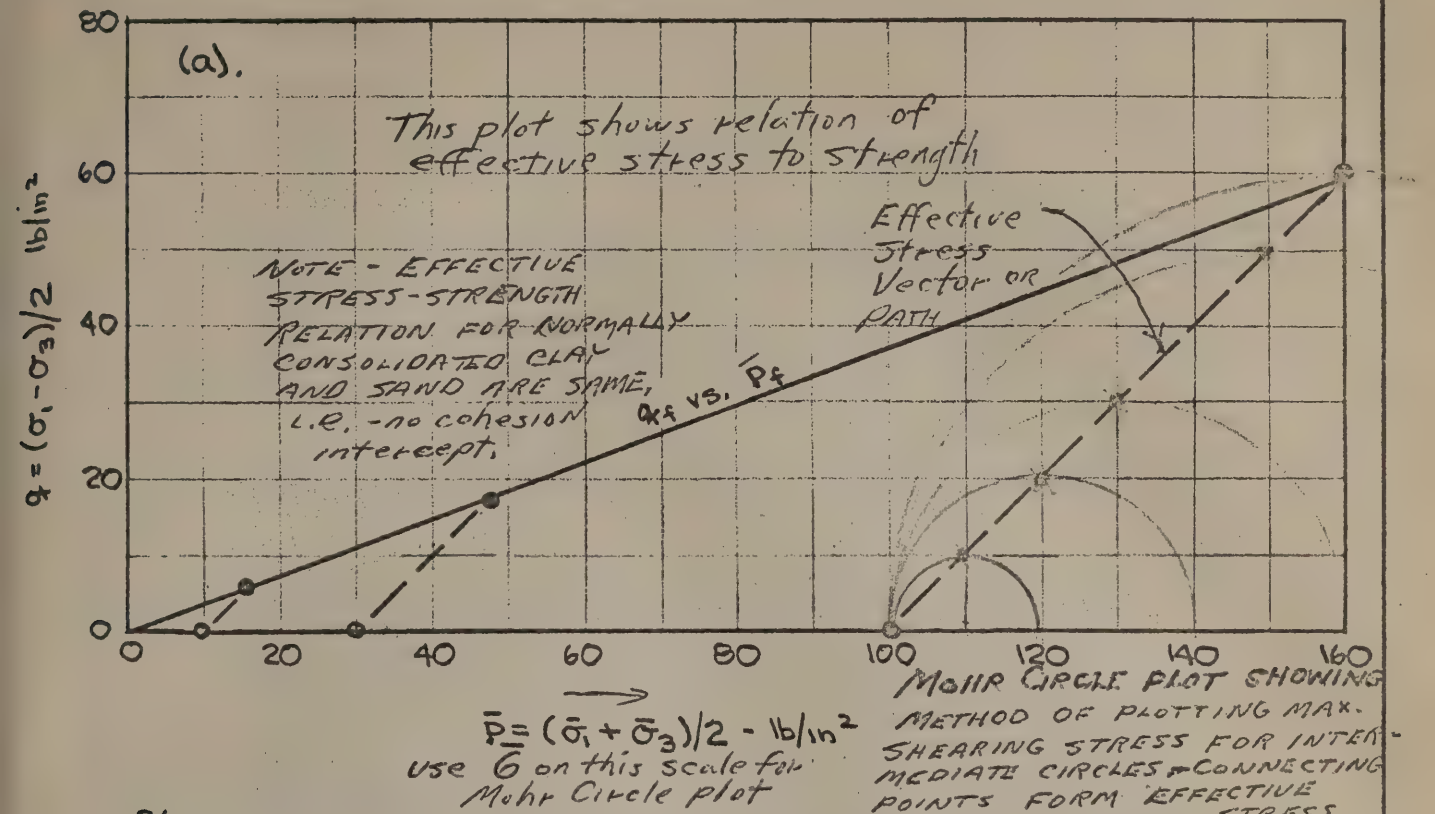 80
(a).
This plot shows relation of
effective stress to strength
60
Effective
Stress
Vector OR
PATH
NOTE - EFFECTIVE
STRESS-STRENGTH
RELATION FOR NORMALLY
CONSOLIDATED CLAY
AND SAND ARE SAME,
i.e. -no cohesion
intercept.
q = (σ₁ - σ₃)/2 lb/in²
40
qf vs. p̄f
20
0
0 20 40 60 80 100 120 140 160
p̄ = (σ̄₁ + σ̄₃)/2 - lb/in²
use σ̄ on this scale for
Mohr Circle plot
MOHR CIRCLE PLOT SHOWING
METHOD OF PLOTTING MAX.
SHEARING STRESS FOR INTER-
MEDIATE CIRCLES CONNECTING
POINTS FORM EFFECTIVE
STRESS